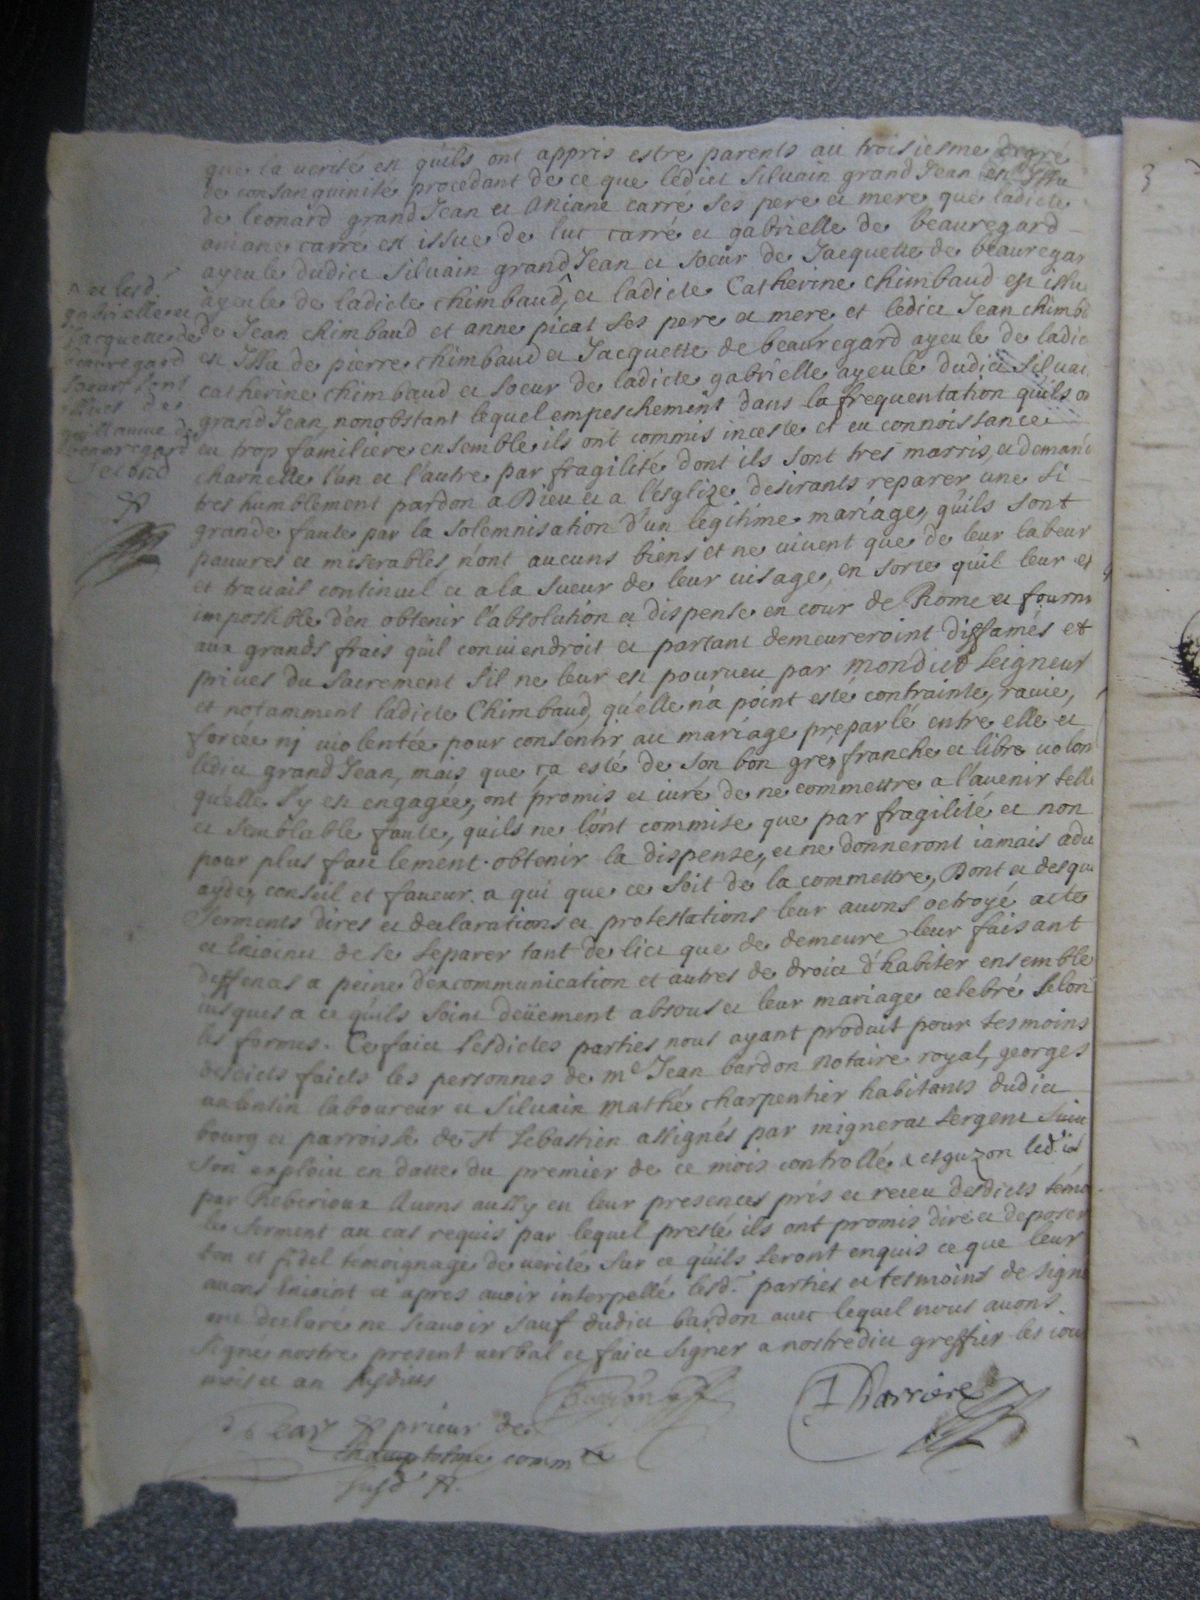 que la verité est quils ont appris estre parents au troisiesme degré
de consanguinité procedant de ce que ledict silvain grandJean est Issu
de leonard grandJean et Aniane carré ses pere et mere que ladicte
aniane carré est issue de luc carré et gabrielle de beauregard
ayeule dudict silvain grandJean et soeur de Jacquette de beauregar
ayeule de ladicte chimbaud, ^ et ladicte Catherine chimbaud est issu
de Jean chimbaud et anne picat ses pere et mere et ledict Jean chimb
est Issu de pierre chimbaud et Jacquette de beauregard ayeule de ladic
catherine chimbaud et soeur de ladicte gabrielle ayeule dudict silua
grandJean, nonobstant lequel empeschement dans la frequentation quils o
eu trop familiere ensemble ils ont commis inceste et eu connoissance
charnelle l'un et l'autre par fragilité dont ils sont tres marris, et deman
tres humblement pardon a Dieu et a l'esglize desirants reparer une si
grande faute par la solemnisation d'un legitime mariage, quils sont
pauures et miserables, n'ont aucuns biens et ne uiuent que de leur labeur
et trauail continuel et a la sueur de leur uisage, en sorte quil leur est
impossible d'en obtenir l'absolution et dispense en cour de Rome et fourni
aux grands frais quil conuiendroit et partant demeureroint diffamés et
priués du sacrement sil ne leur est pourueu par mondict seigneur
et notamment ladicte Chimbaud, qu'elle n'a point esté contrainte, rauie,
forcée nj uiolentée pour consentir au mariage préparlé entre elle et
ledict grandJean, mais que ça esté de son bon gré, franche et libre uolon
qu'elle s'y est engagée, ont promis et iuré de ne commettre a l'auenir telle
et semblable faute, quils ne l'ont commise que par fragilité et non
pour plus facilement obtenir la dispense, et ne donneront iamais
ayde, conseil et faueur a qui que ce soit de la commettre, Dont et desqu
serments dires et declarations et protestations leur auons octroyé acte
et enioint de se separer tant de lict que de demeure leur faisant
deffences a peine d'excommunication et autres de droict d'habiter ensemble
iusques a ce quils soint deüement absous et leur mariage celebré selon
les formes. Ce faict lesdictes parties nous ayant produit pour tesmoins
desdicts faicts les personnes de me Jean bardon notaire royal, georges
ualentin laboureur et siluain mathé charpentier habitants dudict
bourg et parroisse de st sebastien assignés par mignerat sergent suiu
son exploict en datte du premier de ce mois controllé a esguzon led.
par Reberioux Auons aussy en leur presences pris et receu desdicts témo
le serment au cas requis par lequel presté ils ont promis dire et deposer
bon et fidel temoignage de uerité sur ce quils seront enquis ce que leur
auons enioint et apres auoir interpellé lesd. parties et tesmoins de signe
ont declaré ne scauoir sauf dudict bardon auec lequel nous auons
signé nostre present uerbal et faict signer a nostredict greffier les iour
mois et an susdicts
^ et lesd.
gabrielle et
Jacquette de
beauregard
soeurs sont
filles de
guillaume de
beauregard
Bardon
Barriere
prieur de
comm re
susd